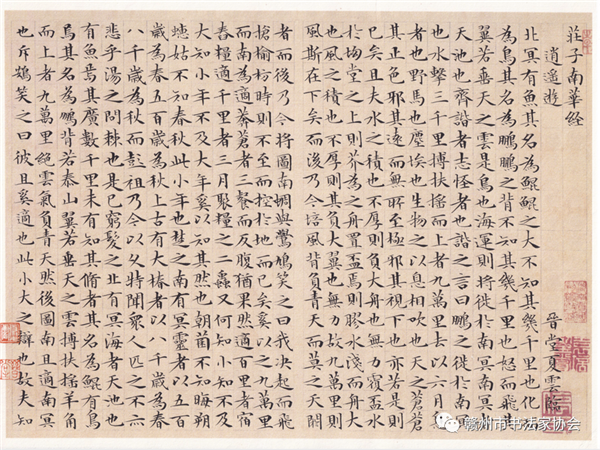 莊子南華经
逍遥遊
晉堂夏雲臨
北冥有魚其名為鯤鯤之大不知其幾千里也化
為鳥其名為鵬鵬之背不知其幾千里也怒而飛其
翼若垂天之雲是鳥也海運則將徙於南冥南冥
天池也齊諧者志怪者也諧之言曰鵬之徙於南
也水擊三千里搏扶搖而上者九萬里去以六月
者也野馬也塵埃也生物之以息相吹也天之蒼蒼
其正色邪其遠而無所至極邪其視下也亦若是則
已矣且夫水之積也不厚則負大舟也無力覆盃水
於坳堂之上則芥為之舟置盃焉則膠水淺而舟大
也風之積也不厚則其負大翼也無力故九萬里則
風斯在下矣而後乃今培風背負青天而莫之夭閼
者而後乃今將圖南蜩與鷽鳩笑之曰我決起而飛
搶榆枋時則不至而控於地而已矣奚以之九萬里
而南為適莽蒼者三餐而反腹猶果然適百里者宿
舂糧適千里者三月聚糧之二蟲又何知小知不及
大知小年不及大年奚以知其然也朝菌不知晦朔
蟪蛄不知春秋此小年也楚之南有冥靈者以五百
歲為春五百歲為秋上古有大椿者以八千歲為春
八千歲為秋而彭祖乃今以久特聞眾人匹之不亦
悲乎湯之問棘也是已窮髮之北有冥海者天池也
有魚焉其廣數千里未有知其脩者其名為鯤有鳥
焉其名為鵬背若泰山翼若垂天之雲搏扶搖羊角
而上者九萬里絕雲氣負青天然後圖南且適南冥
也斥鴳笑之曰彼且奚適也此小大之辯也故夫知
赣州市书法家协会